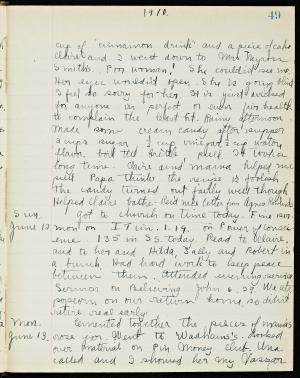 1910.
49
cup of cinnamon drink and a piece of cake.
Claire and I went down to Mrs. Myron
Smith's. Poor woman! She couldn't see me.
Her eyes wouldn't open. She is going blind
I feel so sorry for her. It's just wicked
for anyone in perfect or even fair health
to complain the least bit. Rainy afternoon.
Made some cream candy after supper
3 cups sugar ½ cup vinegar ½ cup water
flavor, boil till brittle pull. It took a
long time. Claire and mama helped me
pull. Papa thinks the recipe is foolish
The candy turned out fairly well though
Helped Claire bathe. Read nice letter from Agnes
Sun. Got to church on time today. Fine ser-
June 12. mon on I Tim. 1.19. on Power of Consci-
ence. 135 in S.S. today. Read to Claire,
and to her and Hilda, Sally and Robert in
a bunch. Had hard work to keep peace
between them. Attended evening service
Sermon on Believing John 6.29. We ate
popcorn on our return home so didn't
retire real early.
Mon. Cemented together the pieces of mama's
June 13. rose jar. Went to Wadhams's. Looked
over material on Pin Money Club. Una
called and I showed her my Vassar